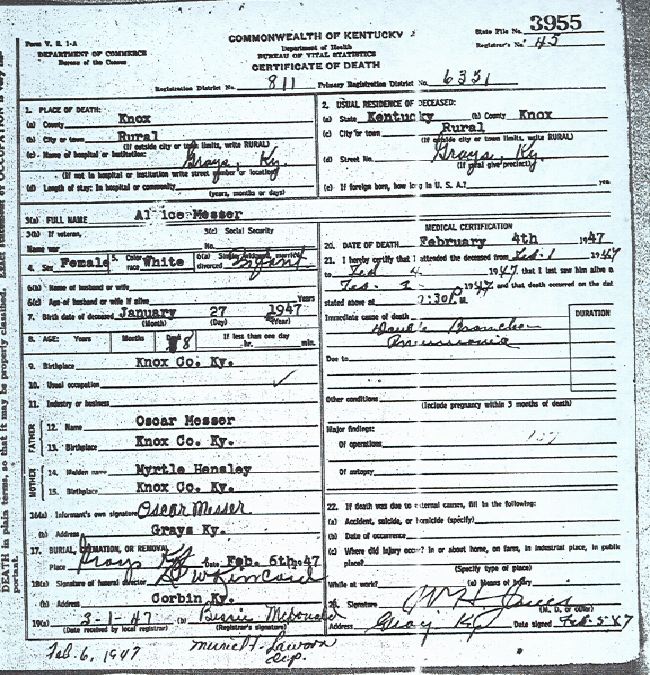 3955
COMMONWEALTH OF KENTUCKY
State File No.
Form V. S. 1-A
Department of Health
Registrar's No. 45
DEPARTMENT OF COMMERCE
BUREAU OF VITAL STATISTICS
Bureau of the Census
CERTIFICATE OF DEATH
Registration District No. 811 Primary Registration District No. 6351
1. PLACE OF DEATH:
(a) County Knox
(b) City or town Rural
(If outside city or town limits, write RURAL)
(c) Name of hospital or institution: Grays, Ky.
(If not in hospital or institution write street number or location)
(d) Length of stay: In hospital or community
(years, months or days)
2. USUAL RESIDENCE OF DECEASED:
(a) State Kentucky (b) County Knox
(c) City or town Rural
(If outside city or town limits, write RURAL)
(d) Street No. Grays, Ky.
(If rural give precinct)
(e) If foreign born, how long in U. S. A.? yrs.
3(a) FULL NAME Alice Messer
3(b) If veteran,
Name war
3(c) Social Security
No.
4. Sex Female 5. Color race White 6(a) Single, widowed, married, divorced Infant
6(b) Name of husband or wife
6(c) Age of husband or wife if alive Years
7. Birth date of deceased January 27 1947
(Month) (Day) (Year)
8. AGE: Years Months 8 If less than one day
hr. min.
9. Birthplace Knox Co. Ky.
10. Usual occupation
11. Industry or business
FATHER
12. Name Oscar Messer
13. Birthplace Knox Co. Ky.
MOTHER
14. Maiden name Myrtle Hensley
15. Birthplace Knox Co. Ky.
16(a) Informant's own signature Oscar Messer
(b) Address Grays Ky.
17. BURIAL, CREMATION, OR REMOVAL
Place Grays Ky Date Feb. 6th 1947
18(a) Signature of funeral director
(b) Address Corbin Ky.
19(a) 3-1-47 (b) Bessie McDonald
(Date received by local registrar) (Registrar's signature)
Feb. 6, 1947
MEDICAL CERTIFICATION
20. DATE OF DEATH February 4th 1947
21. I hereby certify that I attended the deceased from Feb-1 1947
to Feb 4 1947, that I last saw him alive on
Feb. 1947 and that death occurred on the date
stated above at 2:30 P.M.
Immediate cause of death
DURATION
Double Bronchea
Pneumonia
Due to
Other conditions
(Include pregnancy within 3 months of death)
Major findings:
Of operations
Of autopsy
22. If death was due to external causes, fill in the following:
(a) Accident, suicide, or homicide (specify)
(b) Date of occurrence
(c) Where did injury occur? in or about home, on farm, in industrial place, in public
place?
(Specify type of place)
While at work? (e) Means of injury
Signature
(M. D. or other)
Address Gray Ky Date signed Feb-5-47
DEATH in plain terms, so that it may be properly classified.